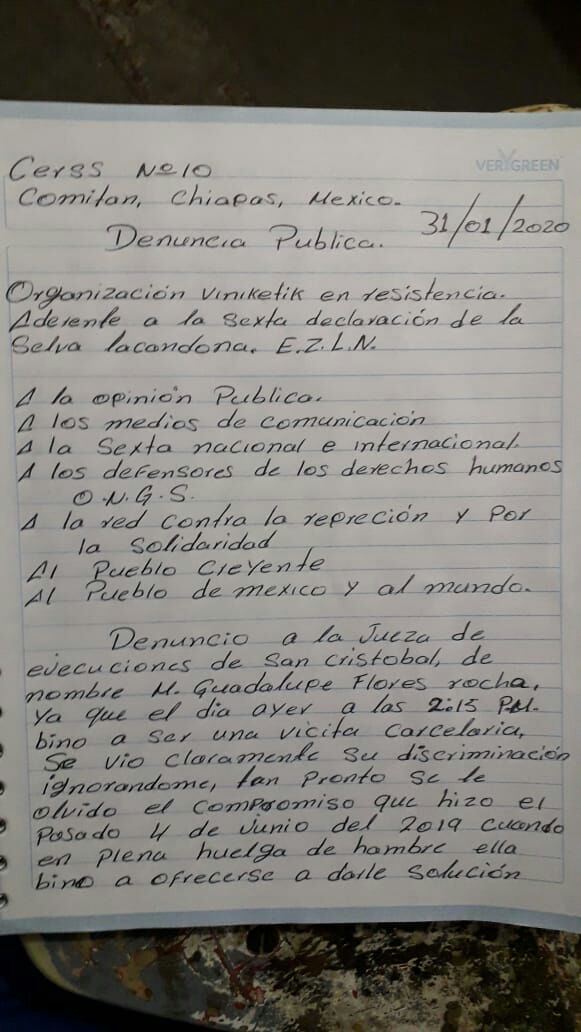 VERYGREEN
Cerss Nº10
Comitan, Chiapas, Mexico.
31/01/2020
Denuncia Publica.
Organización viniketik en resistencia.
Aderente a la sexta declaración de la
Selva lacandona. E.Z.L.N.
A la opinión Publica.
A los medios de comunicación
A la Sexta nacional e internacional.
A los defensores de los derechos humanos
O.N.G.S.
A la red contra la repreción y Por
la Solidaridad
Al Pueblo Creyente
Al Pueblo de mexico y al mundo.
Denuncio a la Jueza de
ejecuciones de San cristobal, de
nombre M. Guadalupe Flores rocha,
Ya que el dia ayer a las 2:15 PM.
bino a Ser una vicita Carcelaria,
Se vio claramente su discriminación
ignorandome, tan Pronto se le
olvido el compromiso que hizo el
Pasado 4 de Junio del 2019 cuando
en Plena huelga de hambre ella
bino a ofrecerse a darle Solución